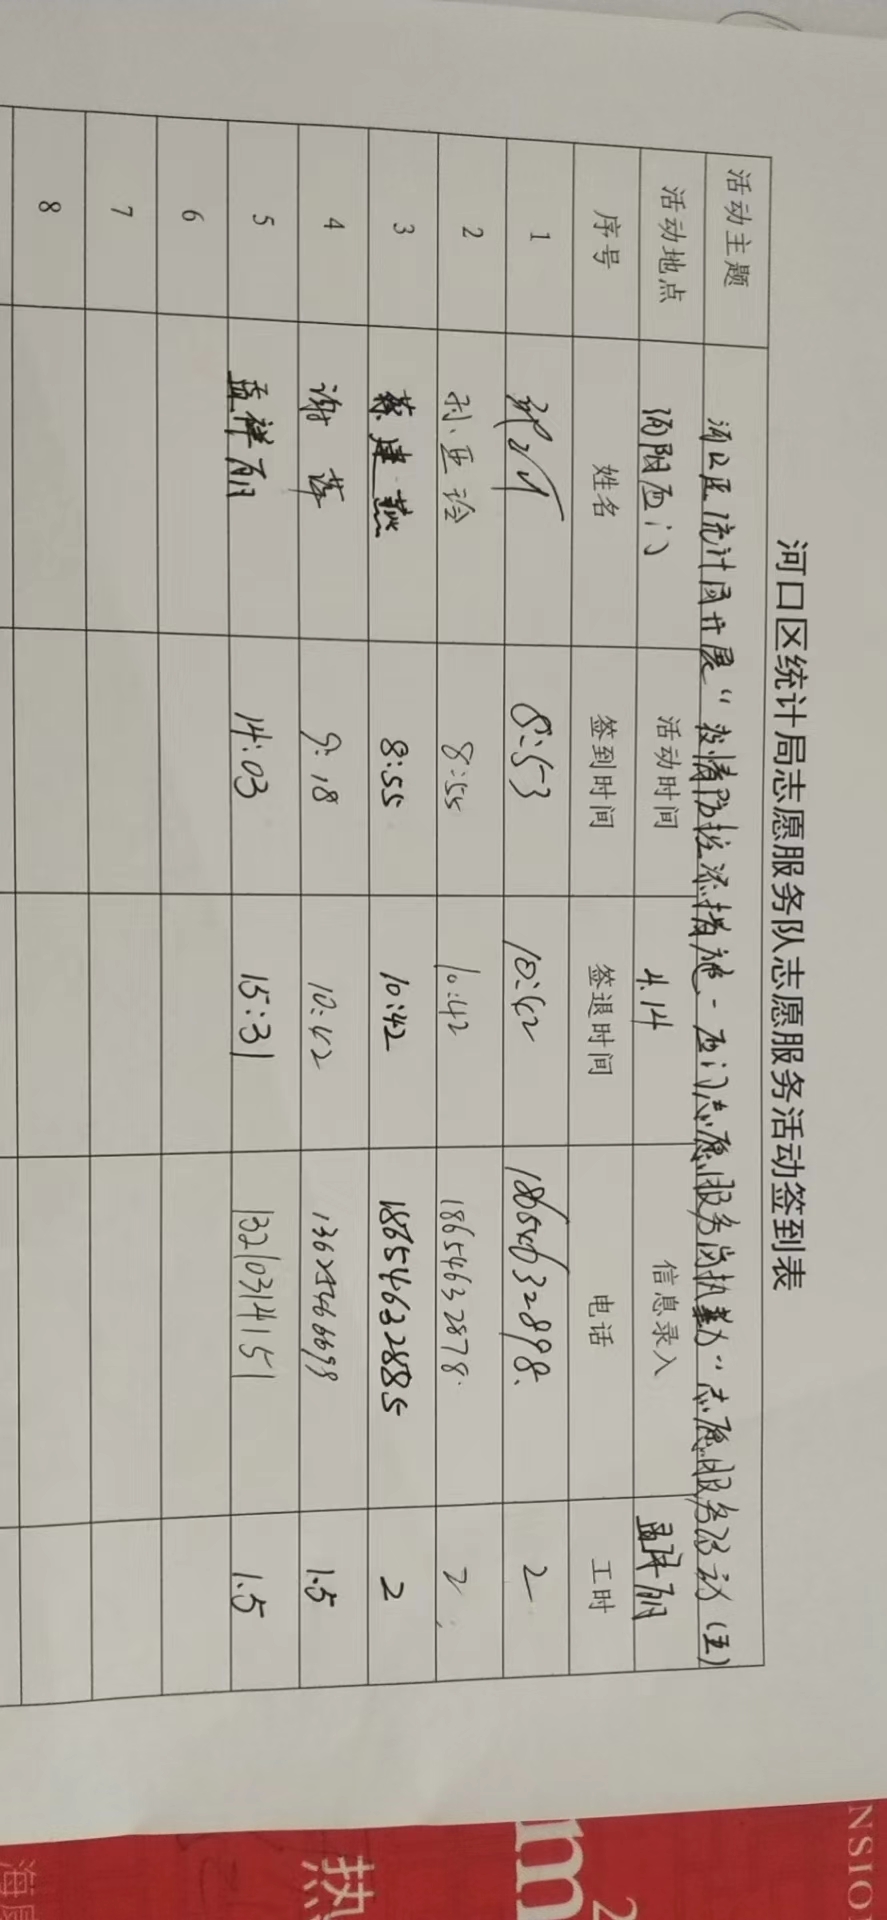 河口区统计局志愿服务队志愿服务活动签到表
活动主题 河口区统计局开展“疫情防控添措施-西门志愿服务岗执勤”志愿服务活动(五)
活动地点 西门 活动时间 4.14 信息录入 孟祥丽
序号 姓名 签到时间 签退时间 电话 工时
1 8:53 10:42 18654632898. 2
2 孙亚玲 8:55 10:42 18654632878. 2
3 蔡建燕 8:55 10:42 18654632885 2
4 谢萍 9:18 10:42 1.5
5 孟祥丽 14:03 15:31 13210314151 1.5
6
7
8
NSIO
m²
热
海